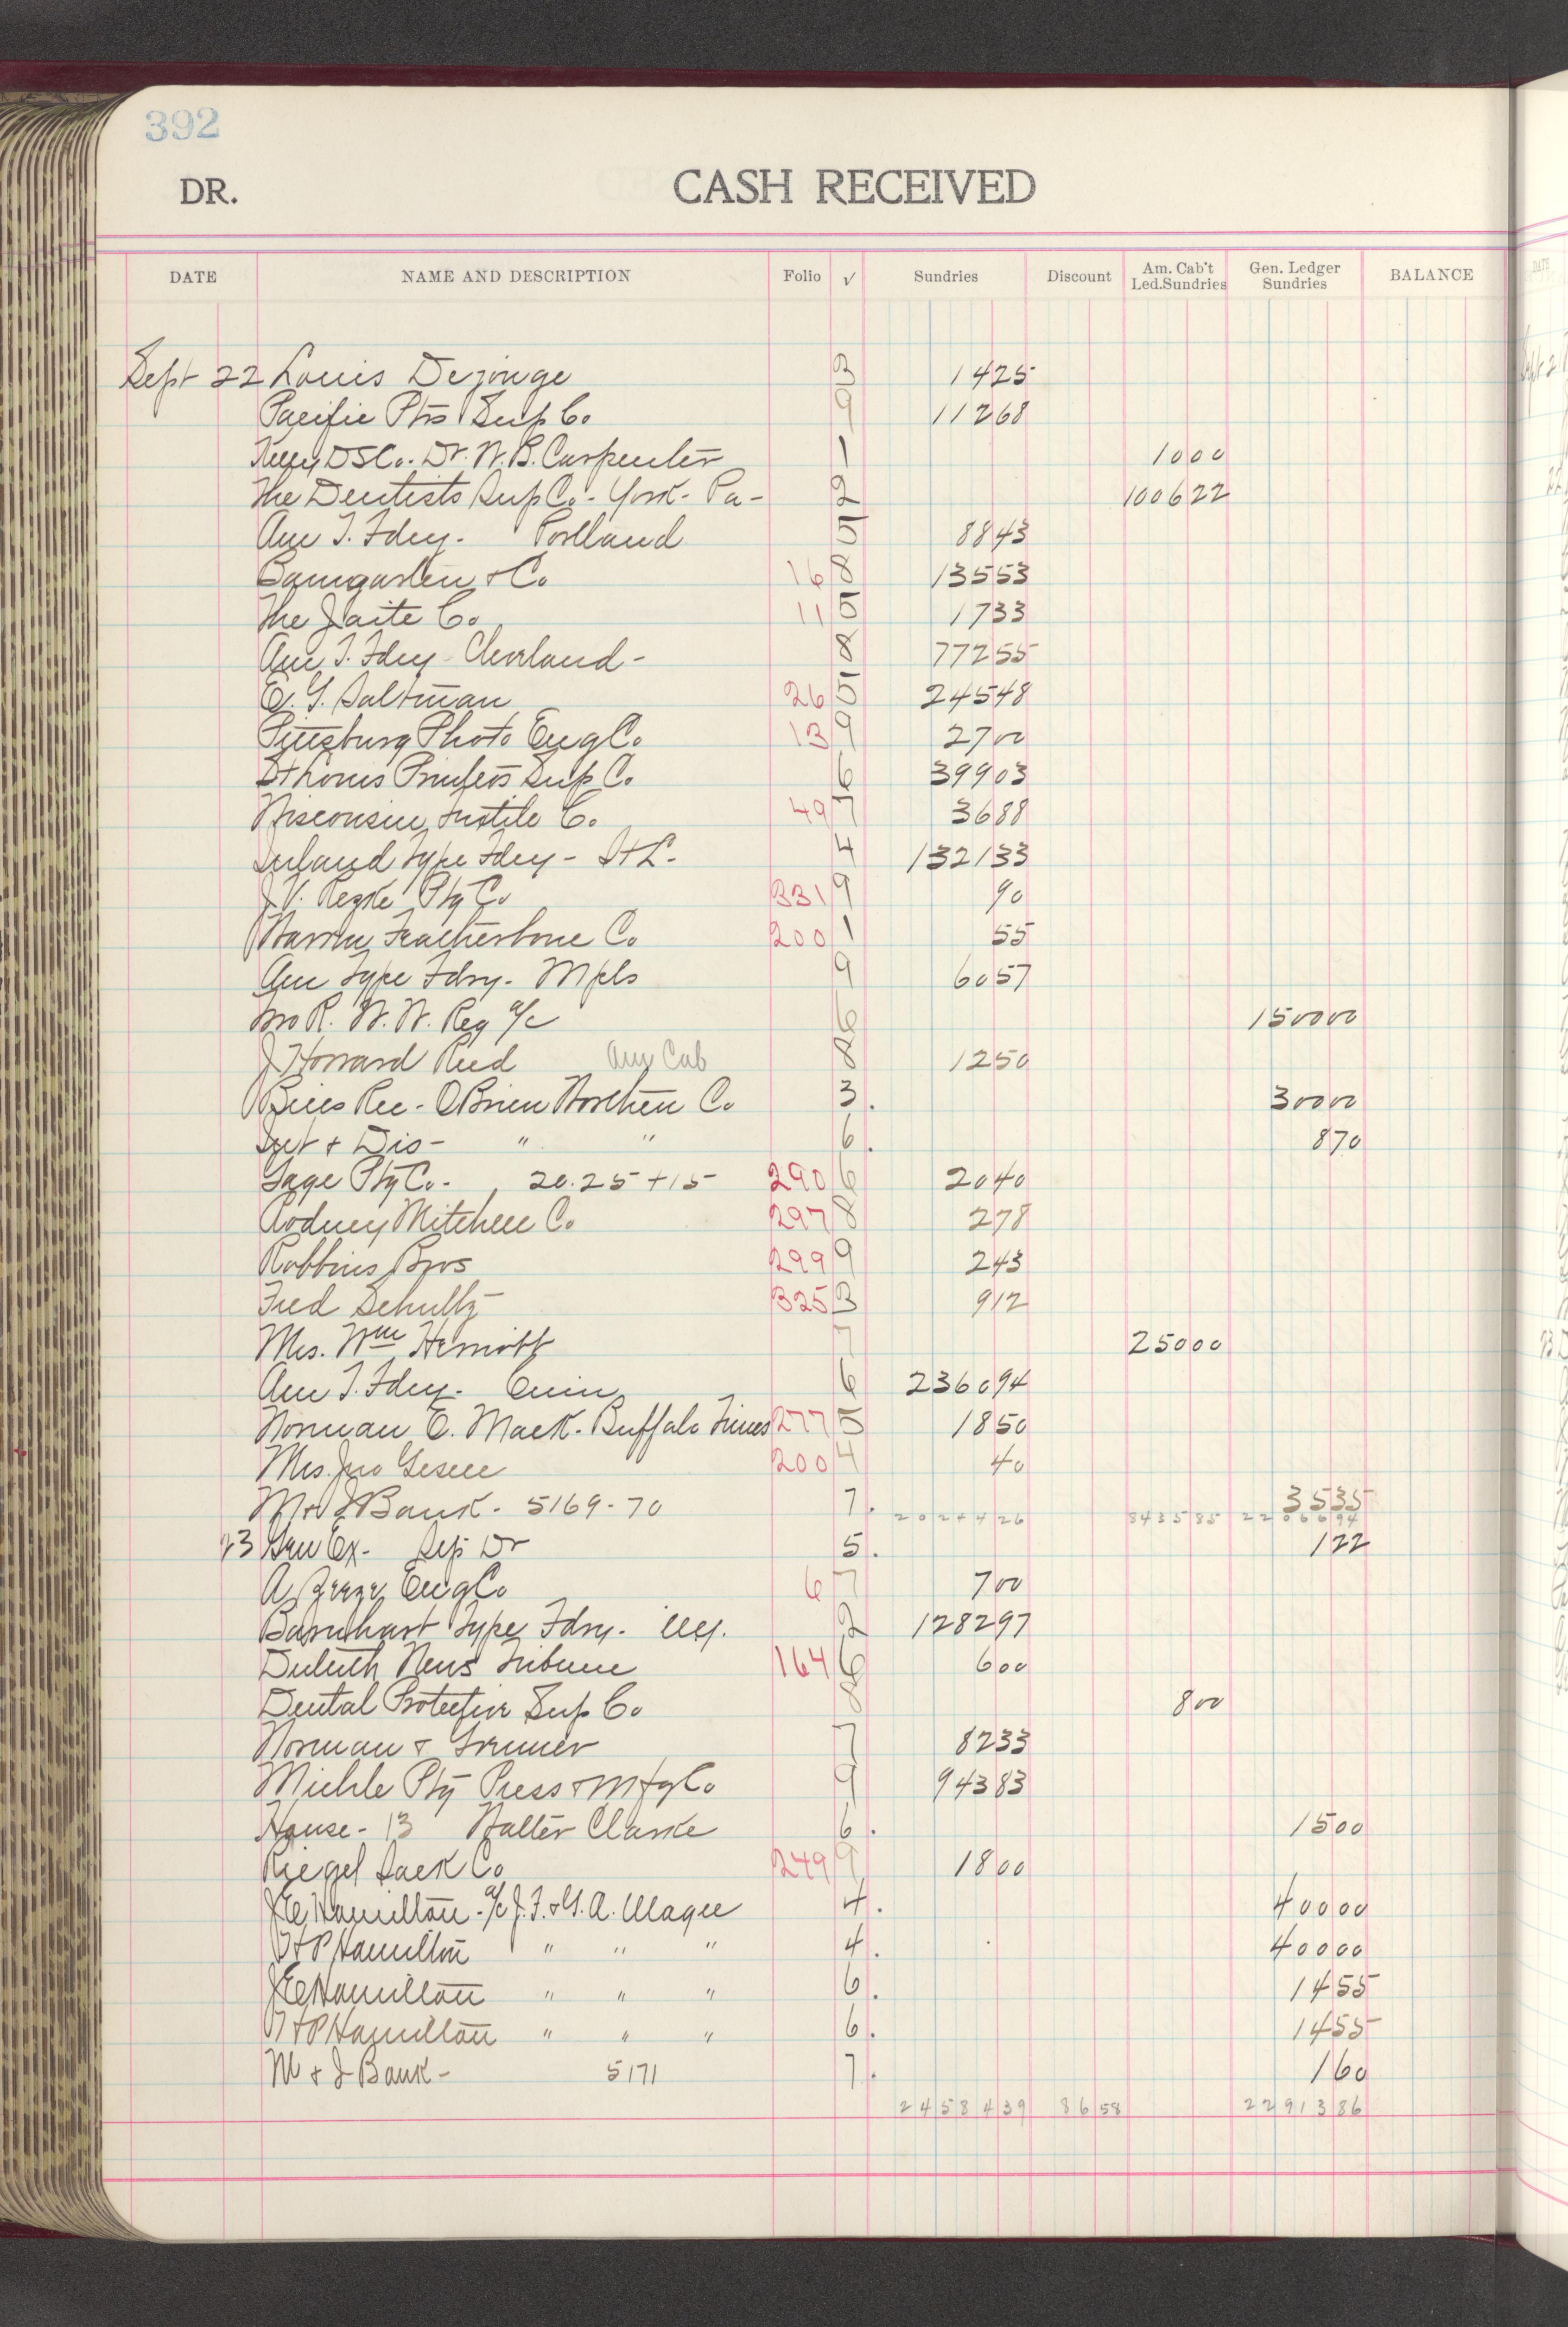 392
DR. CASH RECEIVED
DATE NAME AND DESCRIPTION Folio √ Sundries Discount Am. Cab't Led.Sundries Gen. Ledger Sundries BALANCE
Sept 22 Louis Dejonge 3 1425
Pacific Ptrs Sup Co 9 11268
Kelly DSCo. Dr. W.B. Carpenter 1 1000
The Dentists Sup Co - York - Pa - 2 100622
Am T. Fdry. Portland 5 8843
Bamgarten & Co 16 8 13553
The Jaite Co 11 5 1733
Am T. Fdry - Cleveland - 8 77255
E. G. Saltman 26 5 24548
Pittsburg Photo Eng Co 13 9 2700
St Louis Printers Sup Co 6 39903
Wisconsin Textile Co. 49 7 3688
Inland Type Fdry - St L - 4 132133
J. V. Ptg Co 331 9 90
Warren Featherbone Co 200 1 55
Am Type Fdry - Mpls 9 6057
R. W. W. Reg a/c 6 150000
J Howard Reed Am Cab 8 1250
Bills Rec - OBrien Worthen Co 3. 30000
Int & Dis - " " 6. 870
Gage Ptg Co - 20.25 + 15 290 6 2040
Rodney Mitchell Co 297 8 278
Robbins Bros 299 9 243
Fred Schultz 325 3 912
Mrs. Wm Herriott 7 25000
Am T. Fdry. Cinn 6 236094
Norman E. Mack - Buffalo Times 277 5 1850
Mrs. Jno Gesell 200 4 40
M & J Bank - 5169-70 7. 3535
2024426 843585 2206694
23 Gen Ex - Dr 5. 122
A Zeese Eng Co 6 7 700
Barnhart Type Fdry. 2 128297
Duluth News Tribune 164 6 600
Dental Protective Sup Co 8 800
Norman & 7 8233
Miehle Ptg Press & Mfg Co 9 94383
House - 13 Walter Clarke 6. 1500
Riegel Sack Co 249 9 1800
J E Hamilton - a/c J. F. & G. A. Magee 4. 40000
H P Hamilton " " " 4. 40000
J E Hamilton " " " 6. 1455
H P Hamilton " " " 6. 1455
M & J Bank - 5171 7. 160
2458439 8658 2291386